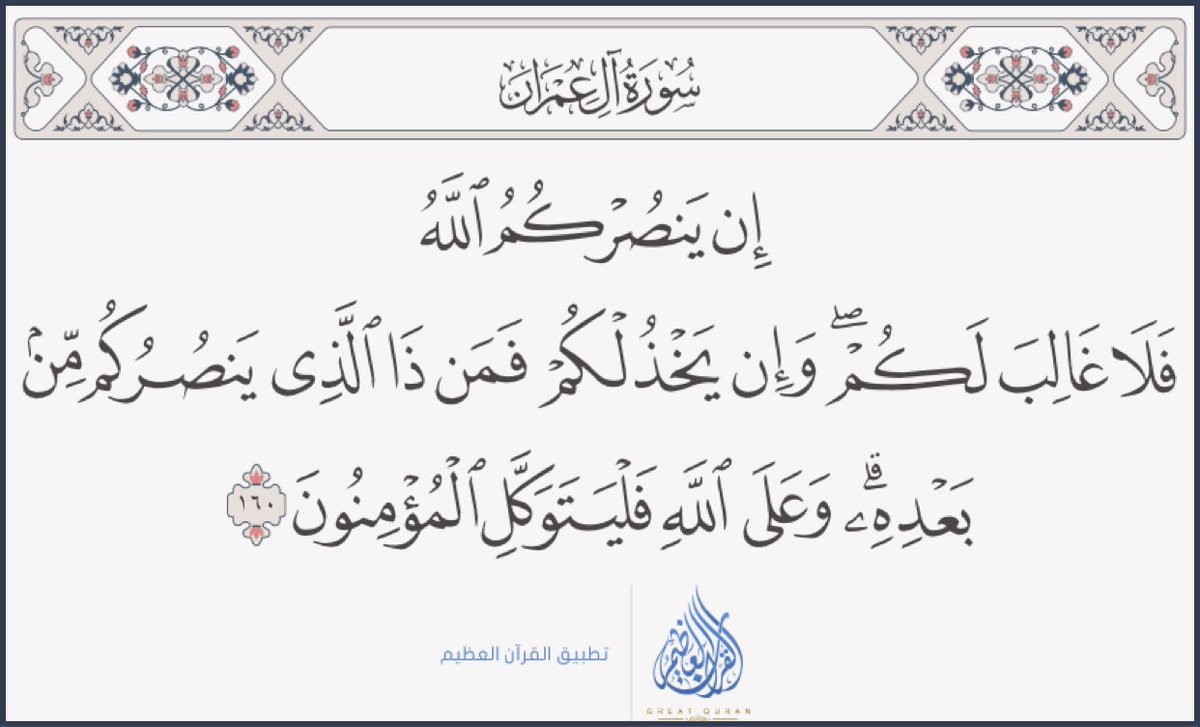 سُورَةُ آلِ عِمْرَان
إِن يَنصُرْكُمُ ٱللَّهُ
فَلَا غَالِبَ لَكُمْ ۖ وَإِن يَخْذُلْكُمْ فَمَن ذَا ٱلَّذِى يَنصُرُكُم مِّنۢ
بَعْدِهِۦ ۗ وَعَلَى ٱللَّهِ فَلْيَتَوَكَّلِ ٱلْمُؤْمِنُونَ ١٦٠
القرآن العظيم
تطبيق القرآن العظيم
GREAT QURAN